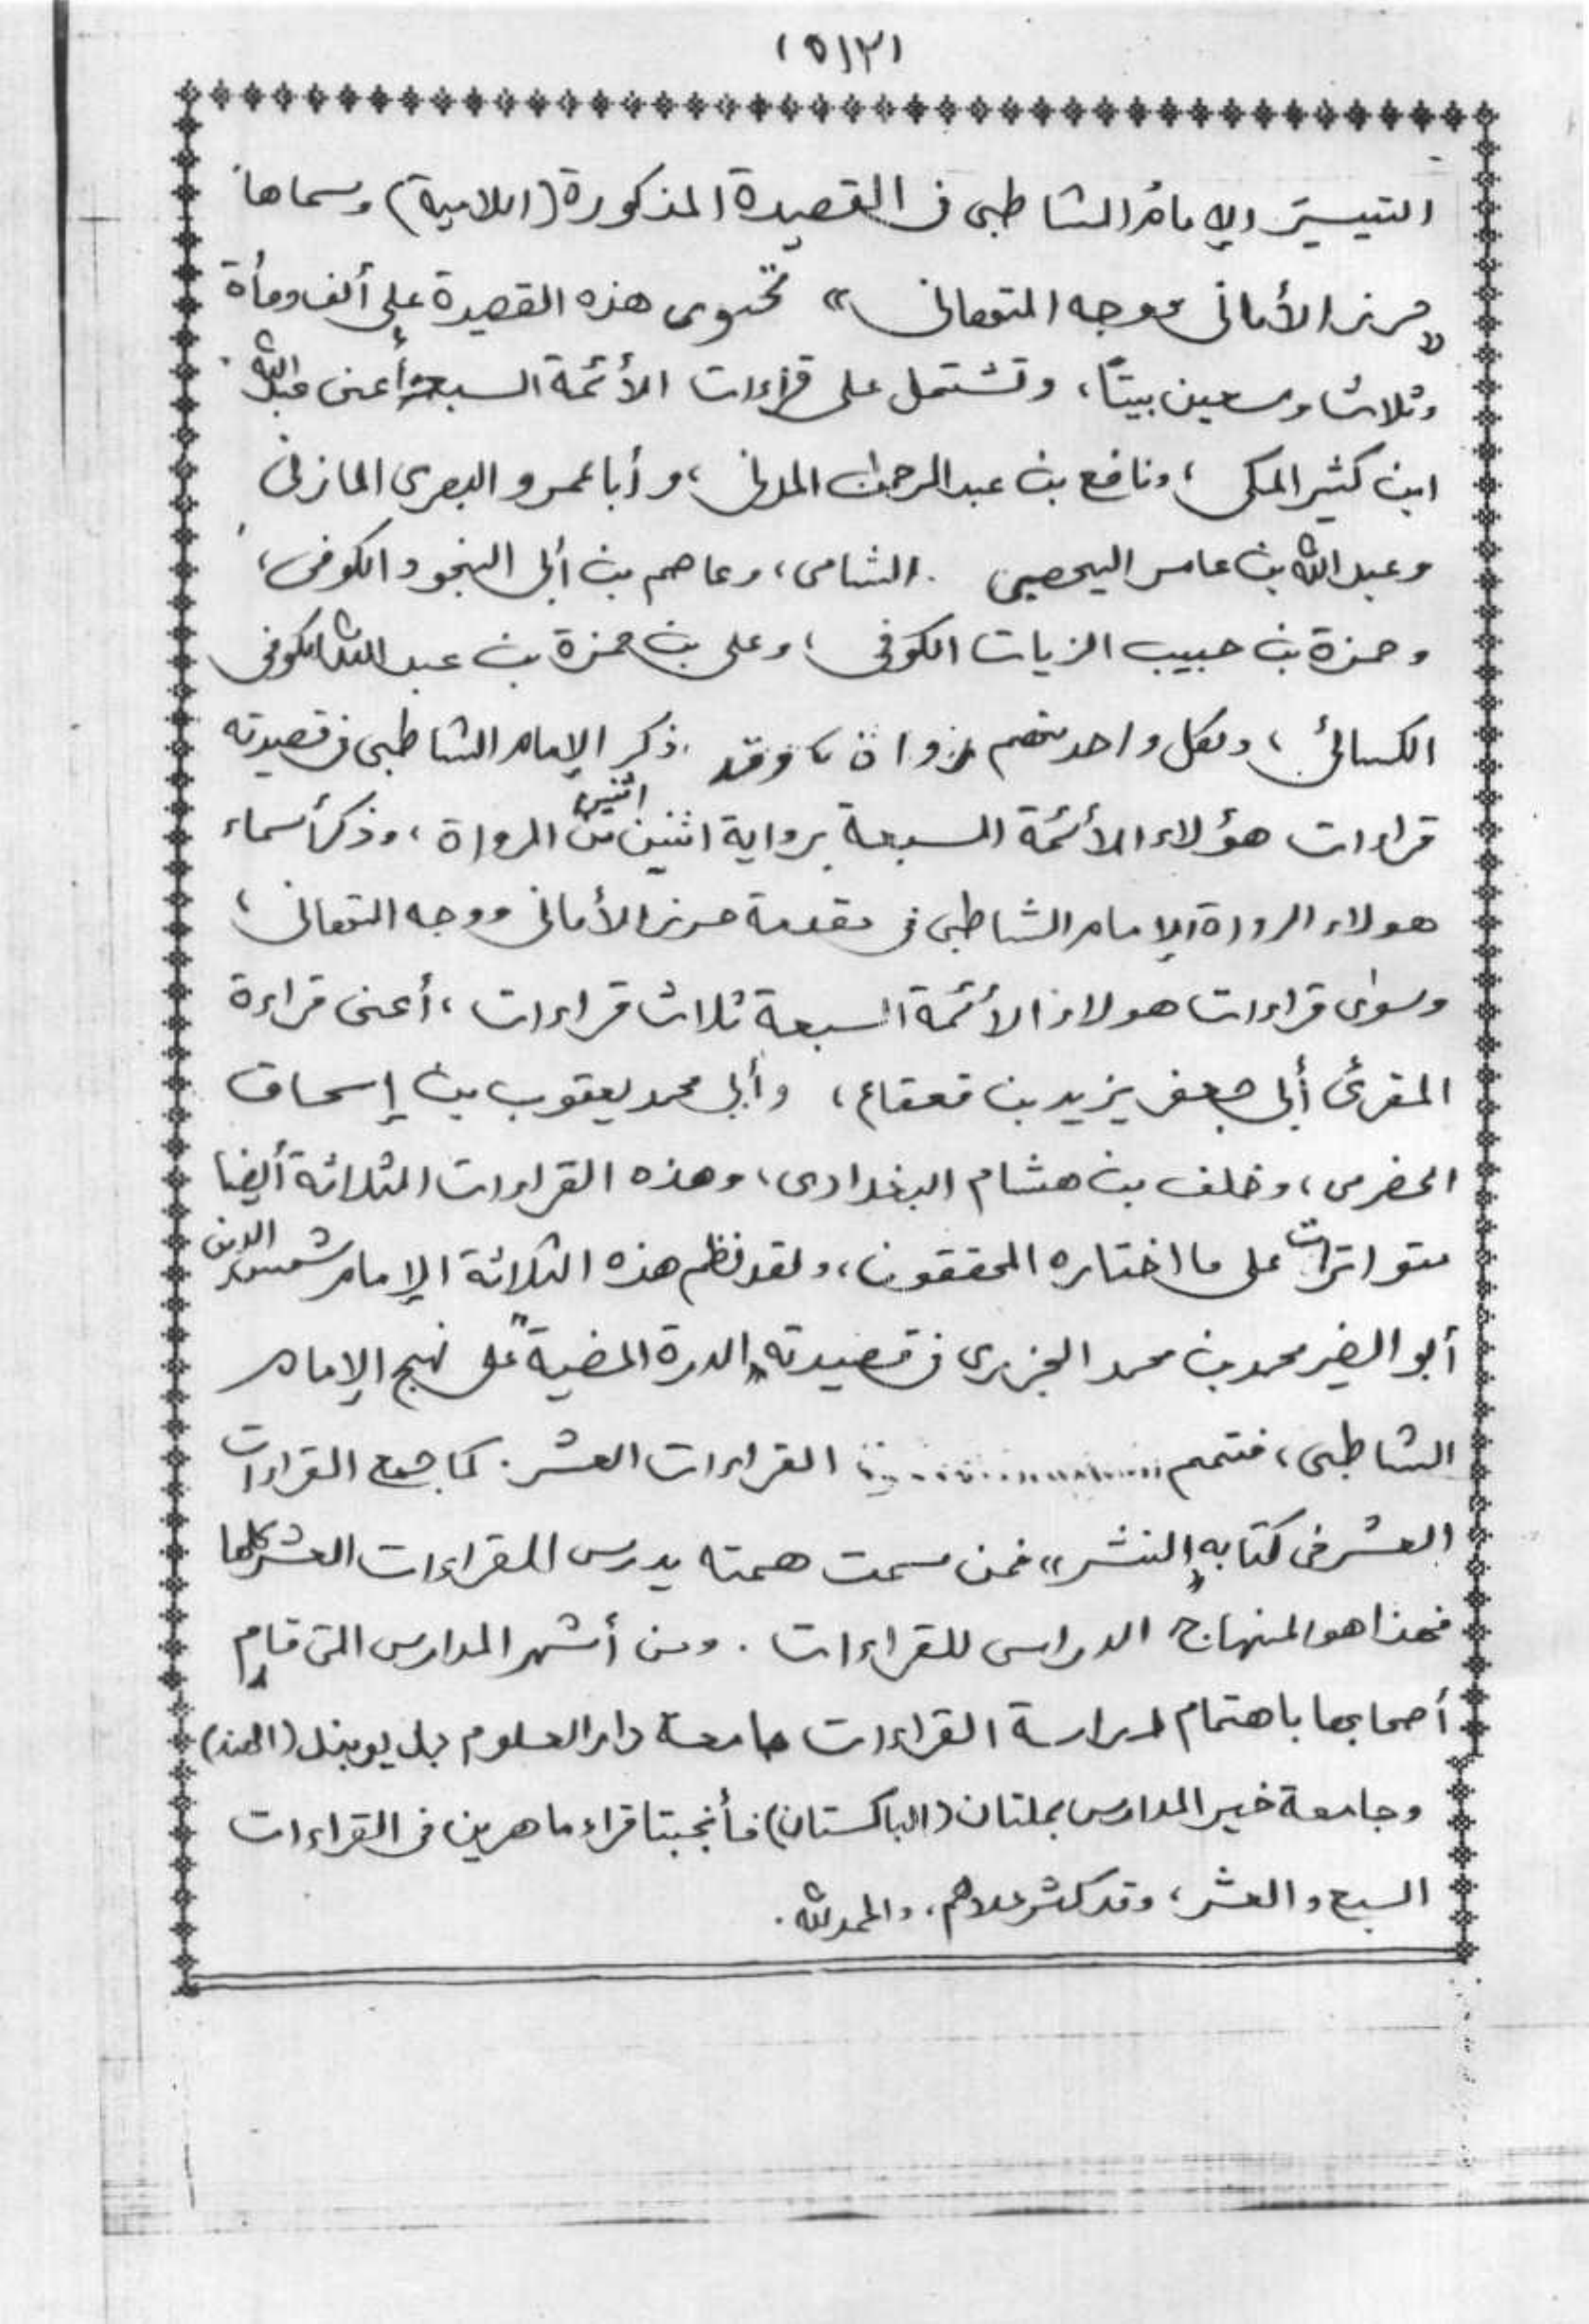 (٥١٢)
التيسير الإمامُ الشاطبي في القصيدة المذكورة (اللامية) وسماها
„حرز الأماني ووجه التهاني“ تحتوي هذه القصيدة على ألف ومأة
وثلاث وسبعين بيتاً، وتشتمل على قراءات الأئمة السبعة أعني عبد الله
ابن كثير المكي، ونافع بن عبد الرحمن المدني، وأبا عمرو البصري المازني
وعبد الله بن عامر اليحصبي الشامي، وعاصم بن أبي النجود الكوفي،
وحمزة بن حبيب الزيات الكوفي، وعلي بن حمزة بن عبد الله الكوفي
الكسائي، ولكل واحد منهم رواة، وقد ذكر الإمام الشاطبي في قصيدته
قراءات هؤلاء الأئمة السبعة برواية اثنين اثنين من الرواة، وذكر أسماء
هولاء الرواة الإمام الشاطبي في مقدمة حرز الأماني ووجه التهاني،
وسوى قراءات هولاء الأئمة السبعة ثلاث قراءات، أعني قراءة
المقرئ أبي جعفر يزيد بن قعقاع، وأبي محمد يعقوب بن إسحاق
الحضرمي، وخلف بن هشام البغدادي، وهذه القراءات الثلاثة أيضا
متواترات على ما اختاره المحققون، ولقد نظم هذه الثلاثة الإمام شمس الدين
أبو الخير محمد بن محمد الجزري في قصيدته „الدرة المضية“ على نهج الإمام
الشاطبي، فتمم القراءات العشر. كما جمع القراءات
العشر في كتابه „النشر“ فمن سمت همته يدرس القراءات العشر كلها
فهذا هو المنهاج الدراسي للقراءات. ومن أشهر المدارس التي قام
أصحابها باهتمام لدراسة القراءات جامعة دار العلوم بديوبند (الهند)
وجامعة خير المدارس بملتان (الباكستان) فأنجبتا قراء ماهرين في القراءات
السبع والعشر، وقد كثر عددهم، والحمد لله.